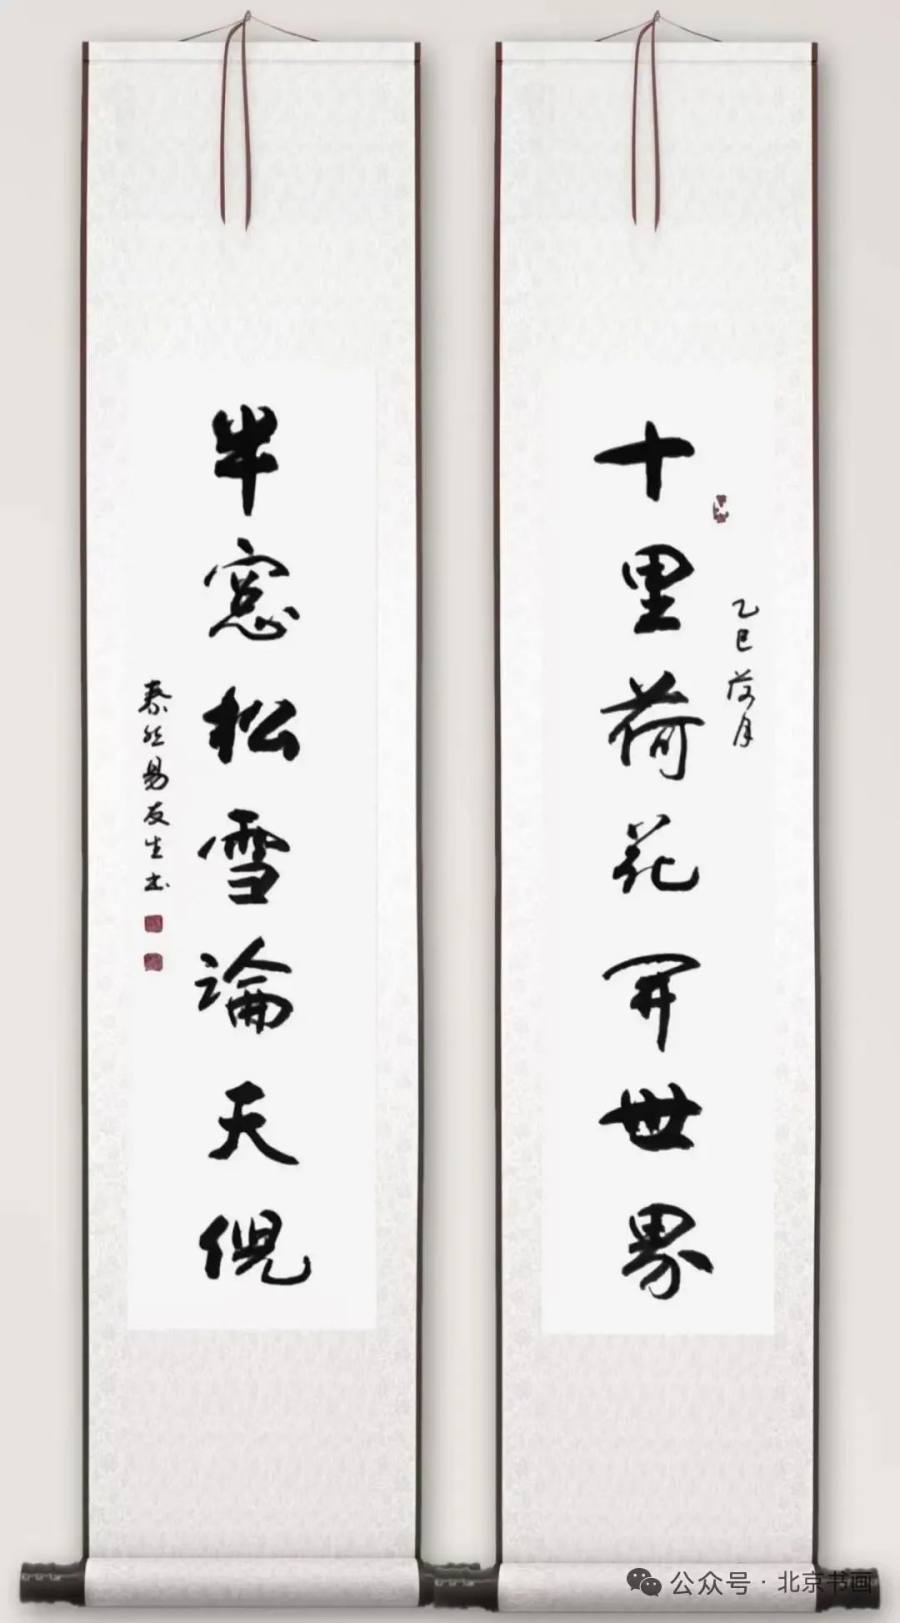 十里荷花開世界
乙巳荷月
半窓松雪論天倪
泰然易友生书
公众号·北京书画